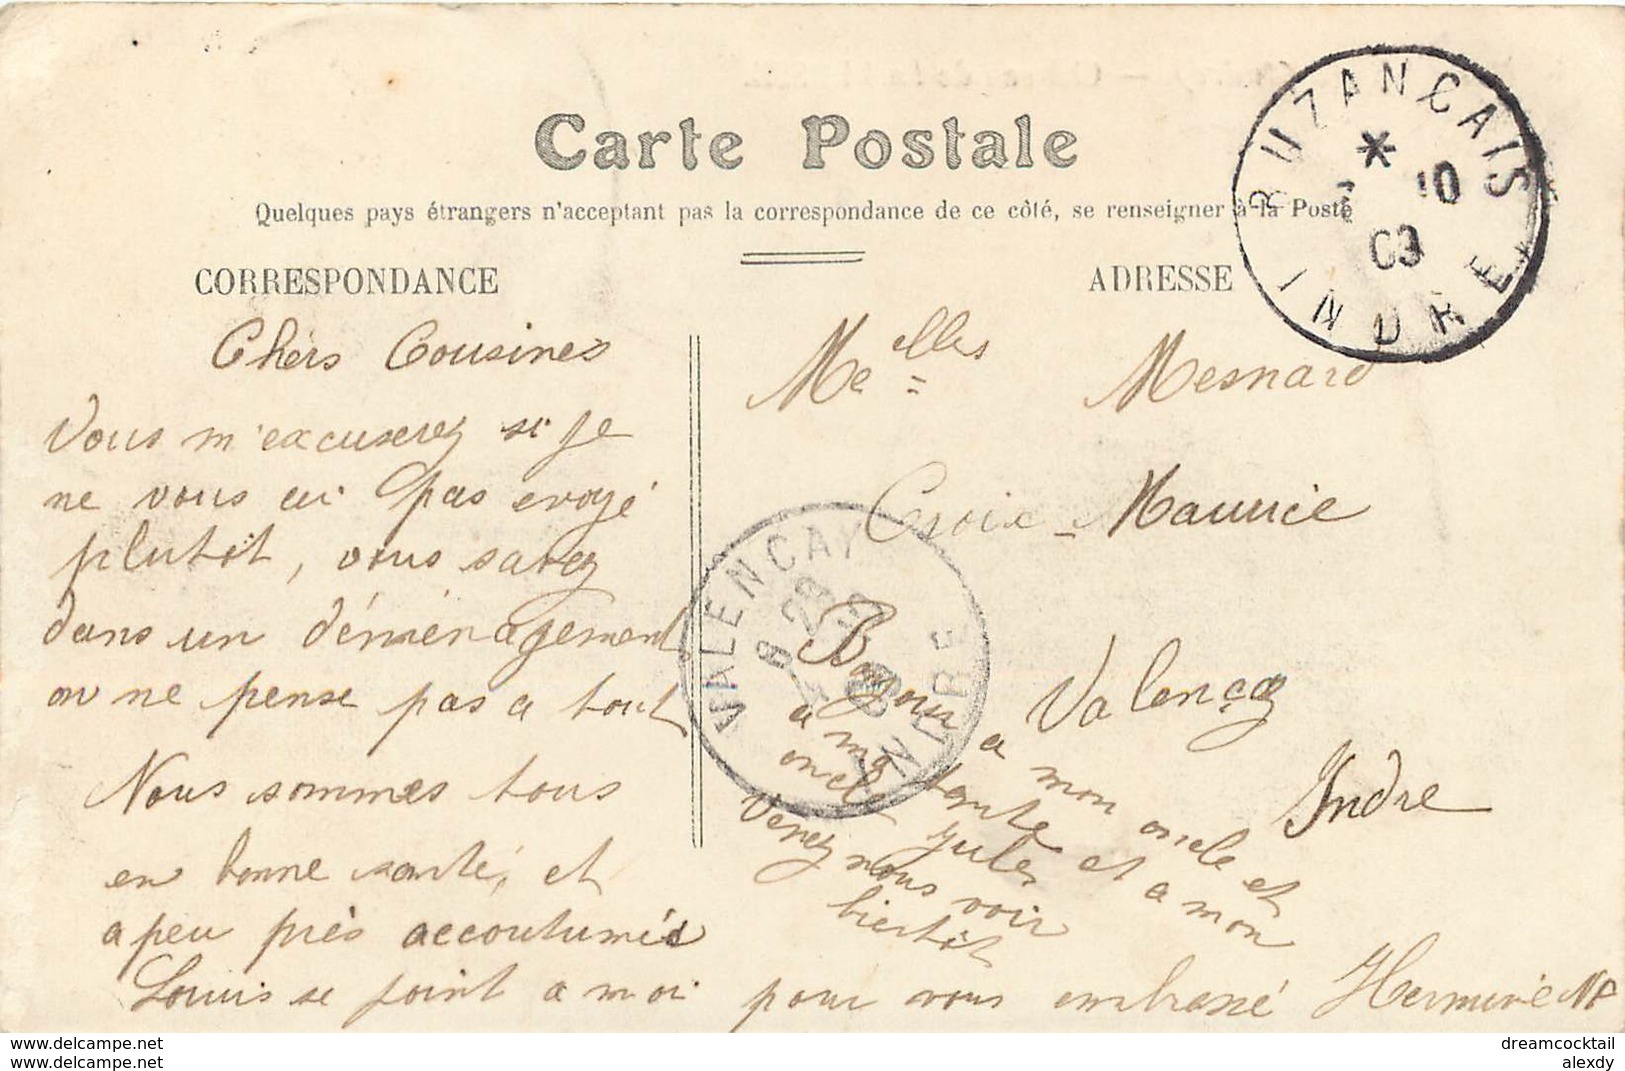 Carte Postale
Quelques pays étrangers n'acceptent pas la correspondance de ce côté, se renseigner à la Poste
CORRESPONDANCE
ADRESSE
BUZANCAIS
* 10
03
INDRE
Chers Cousines
Vous m'excuserez si je
ne vous ai pas evoyé
plutôt, vous savez
dans un déménagement
on ne pense pas a tout
Nous sommes tous
en bonne santé, et
a peu près accoutumés
Louis se joint a moi pour vous embrassé Herminie
Melles Mesnard
Croix-Maurice
Valençay
Indre
VALENCAY
8 28
INDRE
Bonjour a mon oncle et
a ma tante et a mon
oncle Jules
Venez nous voir
bientôt
www.delcampe.net
www.delcampe.net
dreamcocktail
alexdy